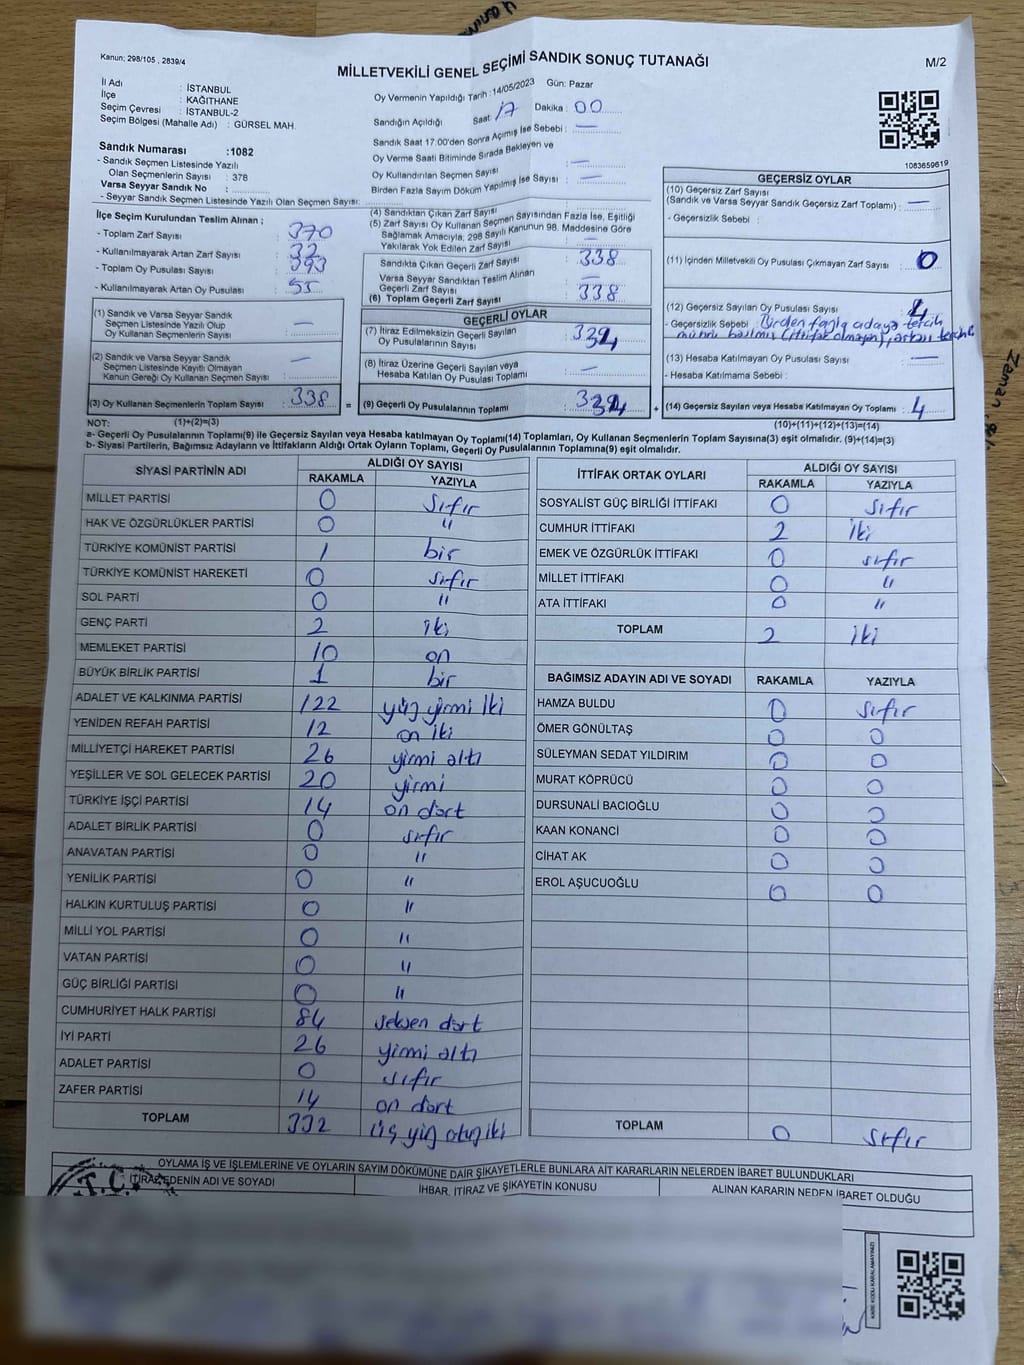 Kanun; 298/105 , 2839/4
MİLLETVEKİLİ GENEL SEÇİMİ SANDIK SONUÇ TUTANAĞI
M/2
İl Adı : İSTANBUL
İlçe : KAĞITHANE
Seçim Çevresi : İSTANBUL-2
Seçim Bölgesi (Mahalle Adı) : GÜRSEL MAH.
Sandık Numarası :1082
- Sandık Seçmen Listesinde Yazılı
Olan Seçmenlerin Sayısı : 378
Varsa Seyyar Sandık No :
- Seyyar Sandık Seçmen Listesinde Yazılı Olan Seçmen Sayısı:
Oy Vermenin Yapıldığı Tarih : 14/05/2023 Gün: Pazar
Sandığın Açıldığı Saat: 17 Dakika : 00
Sandık Saat 17.00'den Sonra Açımış İse Sebebi : —
Oy Verme Saati Bitiminde Sırada Bekleyen ve
Oy Kullandırılan Seçmen Sayısı : —
Birden Fazla Sayım Döküm Yapılmış İse Sayısı : —
1083659619
İlçe Seçim Kurulundan Teslim Alınan ;
- Toplam Zarf Sayısı : 370
- Kullanılmayarak Artan Zarf Sayısı : 32
- Toplam Oy Pusulası Sayısı : 393
- Kullanılmayarak Artan Oy Pusulası : 55
(1) Sandık ve Varsa Seyyar Sandık
Seçmen Listesinde Yazılı Olup
Oy Kullanan Seçmenlerin Sayısı : —
(2) Sandık ve Varsa Seyyar Sandık
Seçmen Listesinde Kayıtlı Olmayan
Kanun Gereği Oy Kullanan Seçmen Sayısı : —
(3) Oy Kullanan Seçmenlerin Toplam Sayısı : 338
(1)+(2)=(3)
(4) Sandıktan Çıkan Zarf Sayısı :
(5) Zarf Sayısı Oy Kullanan Seçmen Sayısından Fazla İse, Eşitliği
Sağlamak Amacıyla, 298 Sayılı Kanunun 98. Maddesine Göre
Yakılarak Yok Edilen Zarf Sayısı : —
Sandıkta Çıkan Geçerli Zarf Sayısı : 338
Varsa Seyyar Sandıktan Teslim Alınan
Geçerli Zarf Sayısı : —
(6) Toplam Geçerli Zarf Sayısı : 338
GEÇERLİ OYLAR
(7) İtiraz Edilmeksizin Geçerli Sayılan
Oy Pusulalarının Sayısı : 334
(8) İtiraz Üzerine Geçerli Sayılan veya
Hesaba Katılan Oy Pusulası Toplamı : —
= (9) Geçerli Oy Pusulalarının Toplamı : 334
GEÇERSİZ OYLAR
(10) Geçersiz Zarf Sayısı
(Sandık ve Varsa Seyyar Sandık Geçersiz Zarf Toplamı) : —
- Geçersizlik Sebebi :
(11) İçinden Milletvekili Oy Pusulası Çıkmayan Zarf Sayısı : 0
(12) Geçersiz Sayılan Oy Pusulası Sayısı : 4
- Geçersizlik Sebebi : Birden fazla adaya tercih
mührü basılmış (ittifak olmayan),
(13) Hesaba Katılmayan Oy Pusulası Sayısı : —
- Hesaba Katılmama Sebebi :
+ (14) Geçersiz Sayılan veya Hesaba Katılmayan Oy Toplamı : 4
(10)+(11)+(12)+(13)=(14)
NOT:
a- Geçerli Oy Pusulaları Toplamı(9) ile Geçersiz Sayılan veya Hesaba katılmayan Oy Toplamı(14) Toplamları, Oy Kullanan Seçmenlerin Toplam Sayısına(3) eşit olmalıdır. (9)+(14)=(3)
b- Siyasi Partilerin, Bağımsız Adayların ve İttifakların Aldığı Ortak Oyların Toplamı, Geçerli Oy Pusulalarının Toplamına(9) eşit olmalıdır.
SİYASİ PARTİNİN ADI ALDIĞI OY SAYISI
RAKAMLA YAZIYLA
MİLLET PARTİSİ 0 sıfır
HAK VE ÖZGÜRLÜKLER PARTİSİ 0 "
TÜRKİYE KOMÜNİST PARTİSİ 1 bir
TÜRKİYE KOMÜNİST HAREKETİ 0 sıfır
SOL PARTİ 0 "
GENÇ PARTİ 2 iki
MEMLEKET PARTİSİ 10 on
BÜYÜK BİRLİK PARTİSİ 1 bir
ADALET VE KALKINMA PARTİSİ 122 yüz yirmi iki
YENİDEN REFAH PARTİSİ 12 on iki
MİLLİYETÇİ HAREKET PARTİSİ 26 yirmi altı
YEŞİLLER VE SOL GELECEK PARTİSİ 20 yirmi
TÜRKİYE İŞÇİ PARTİSİ 14 on dört
ADALET BİRLİK PARTİSİ 0 sıfır
ANAVATAN PARTİSİ 0 "
YENİLİK PARTİSİ 0 "
HALKIN KURTULUŞ PARTİSİ 0 "
MİLLİ YOL PARTİSİ 0 "
VATAN PARTİSİ 0 "
GÜÇ BİRLİĞİ PARTİSİ 0 "
CUMHURİYET HALK PARTİSİ 84 seksen dört
İYİ PARTİ 26 yirmi altı
ADALET PARTİSİ 0 sıfır
ZAFER PARTİSİ 14 on dört
TOPLAM 332 üç yüz otuz iki
İTTİFAK ORTAK OYLARI ALDIĞI OY SAYISI
RAKAMLA YAZIYLA
SOSYALİST GÜÇ BİRLİĞİ İTTİFAKI 0 sıfır
CUMHUR İTTİFAKI 2 iki
EMEK VE ÖZGÜRLÜK İTTİFAKI 0 sıfır
MİLLET İTTİFAKI 0 "
ATA İTTİFAKI 0 "
TOPLAM 2 iki
BAĞIMSIZ ADAYIN ADI VE SOYADI RAKAMLA YAZIYLA
HAMZA BULDU 0 sıfır
ÖMER GÖNÜLTAŞ 0 0
SÜLEYMAN SEDAT YILDIRIM 0 0
MURAT KÖPRÜCÜ 0 0
DURSUNALİ BACIOĞLU 0 0
KAAN KONANCİ 0 0
CİHAT AK 0 0
EROL AŞUCUOĞLU 0 0
TOPLAM 0 sıfır
OYLAMA İŞ VE İŞLEMLERİNE VE OYLARIN SAYIM DÖKÜMÜNE DAİR ŞİKAYETLERLE BUNLARA AİT KARARLARIN NELERDEN İBARET BULUNDUKLARI
İTİRAZ EDENİN ADI VE SOYADI İHBAR, İTİRAZ VE ŞİKAYETİN KONUSU ALINAN KARARIN NEDEN İBARET OLDUĞU
T.C.
KARE KODU KARALAMAYINIZ!
Zaman